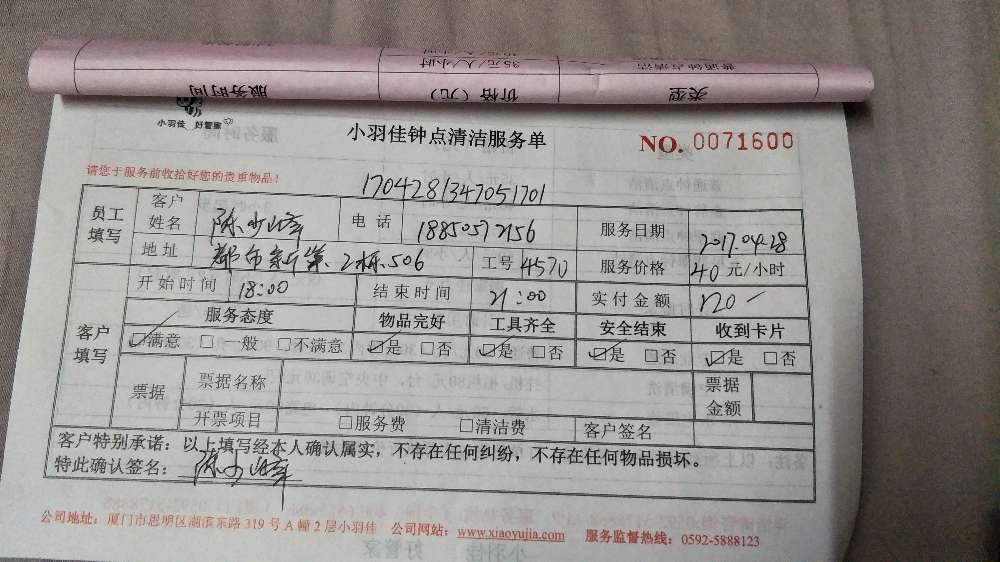 类型 价格（元） 服务时间
普通钟点清洁 35元/人/小时
小羽佳 好管家
小羽佳钟点清洁服务单
NO. 0071600
请您于服务前收拾好您的贵重物品！
1704281347051701
员工填写 客户姓名 陈少峰 电话 18850572156 服务日期 2017.04.28
地址 都市新巢2栋506 工号 4570 服务价格 40元/小时
客户填写 开始时间 18:00 结束时间 21:00 实付金额 120
服务态度 物品完好 工具齐全 安全结束 收到卡片
☑满意 □一般 □不满意 ☑是 □否 ☑是 □否 ☑是 □否 ☑是 □否
票据 票据名称 票据金额
开票项目 □服务费 □清洁费 客户签名
客户特别承诺：以上填写经本人确认属实，不存在任何纠纷，不存在任何物品损坏。
特此确认签名：陈少峰
公司地址：厦门市思明区湖滨东路319号A幢2层小羽佳 公司网站：www.xiaoyujia.com 服务监督热线：0592-5888123